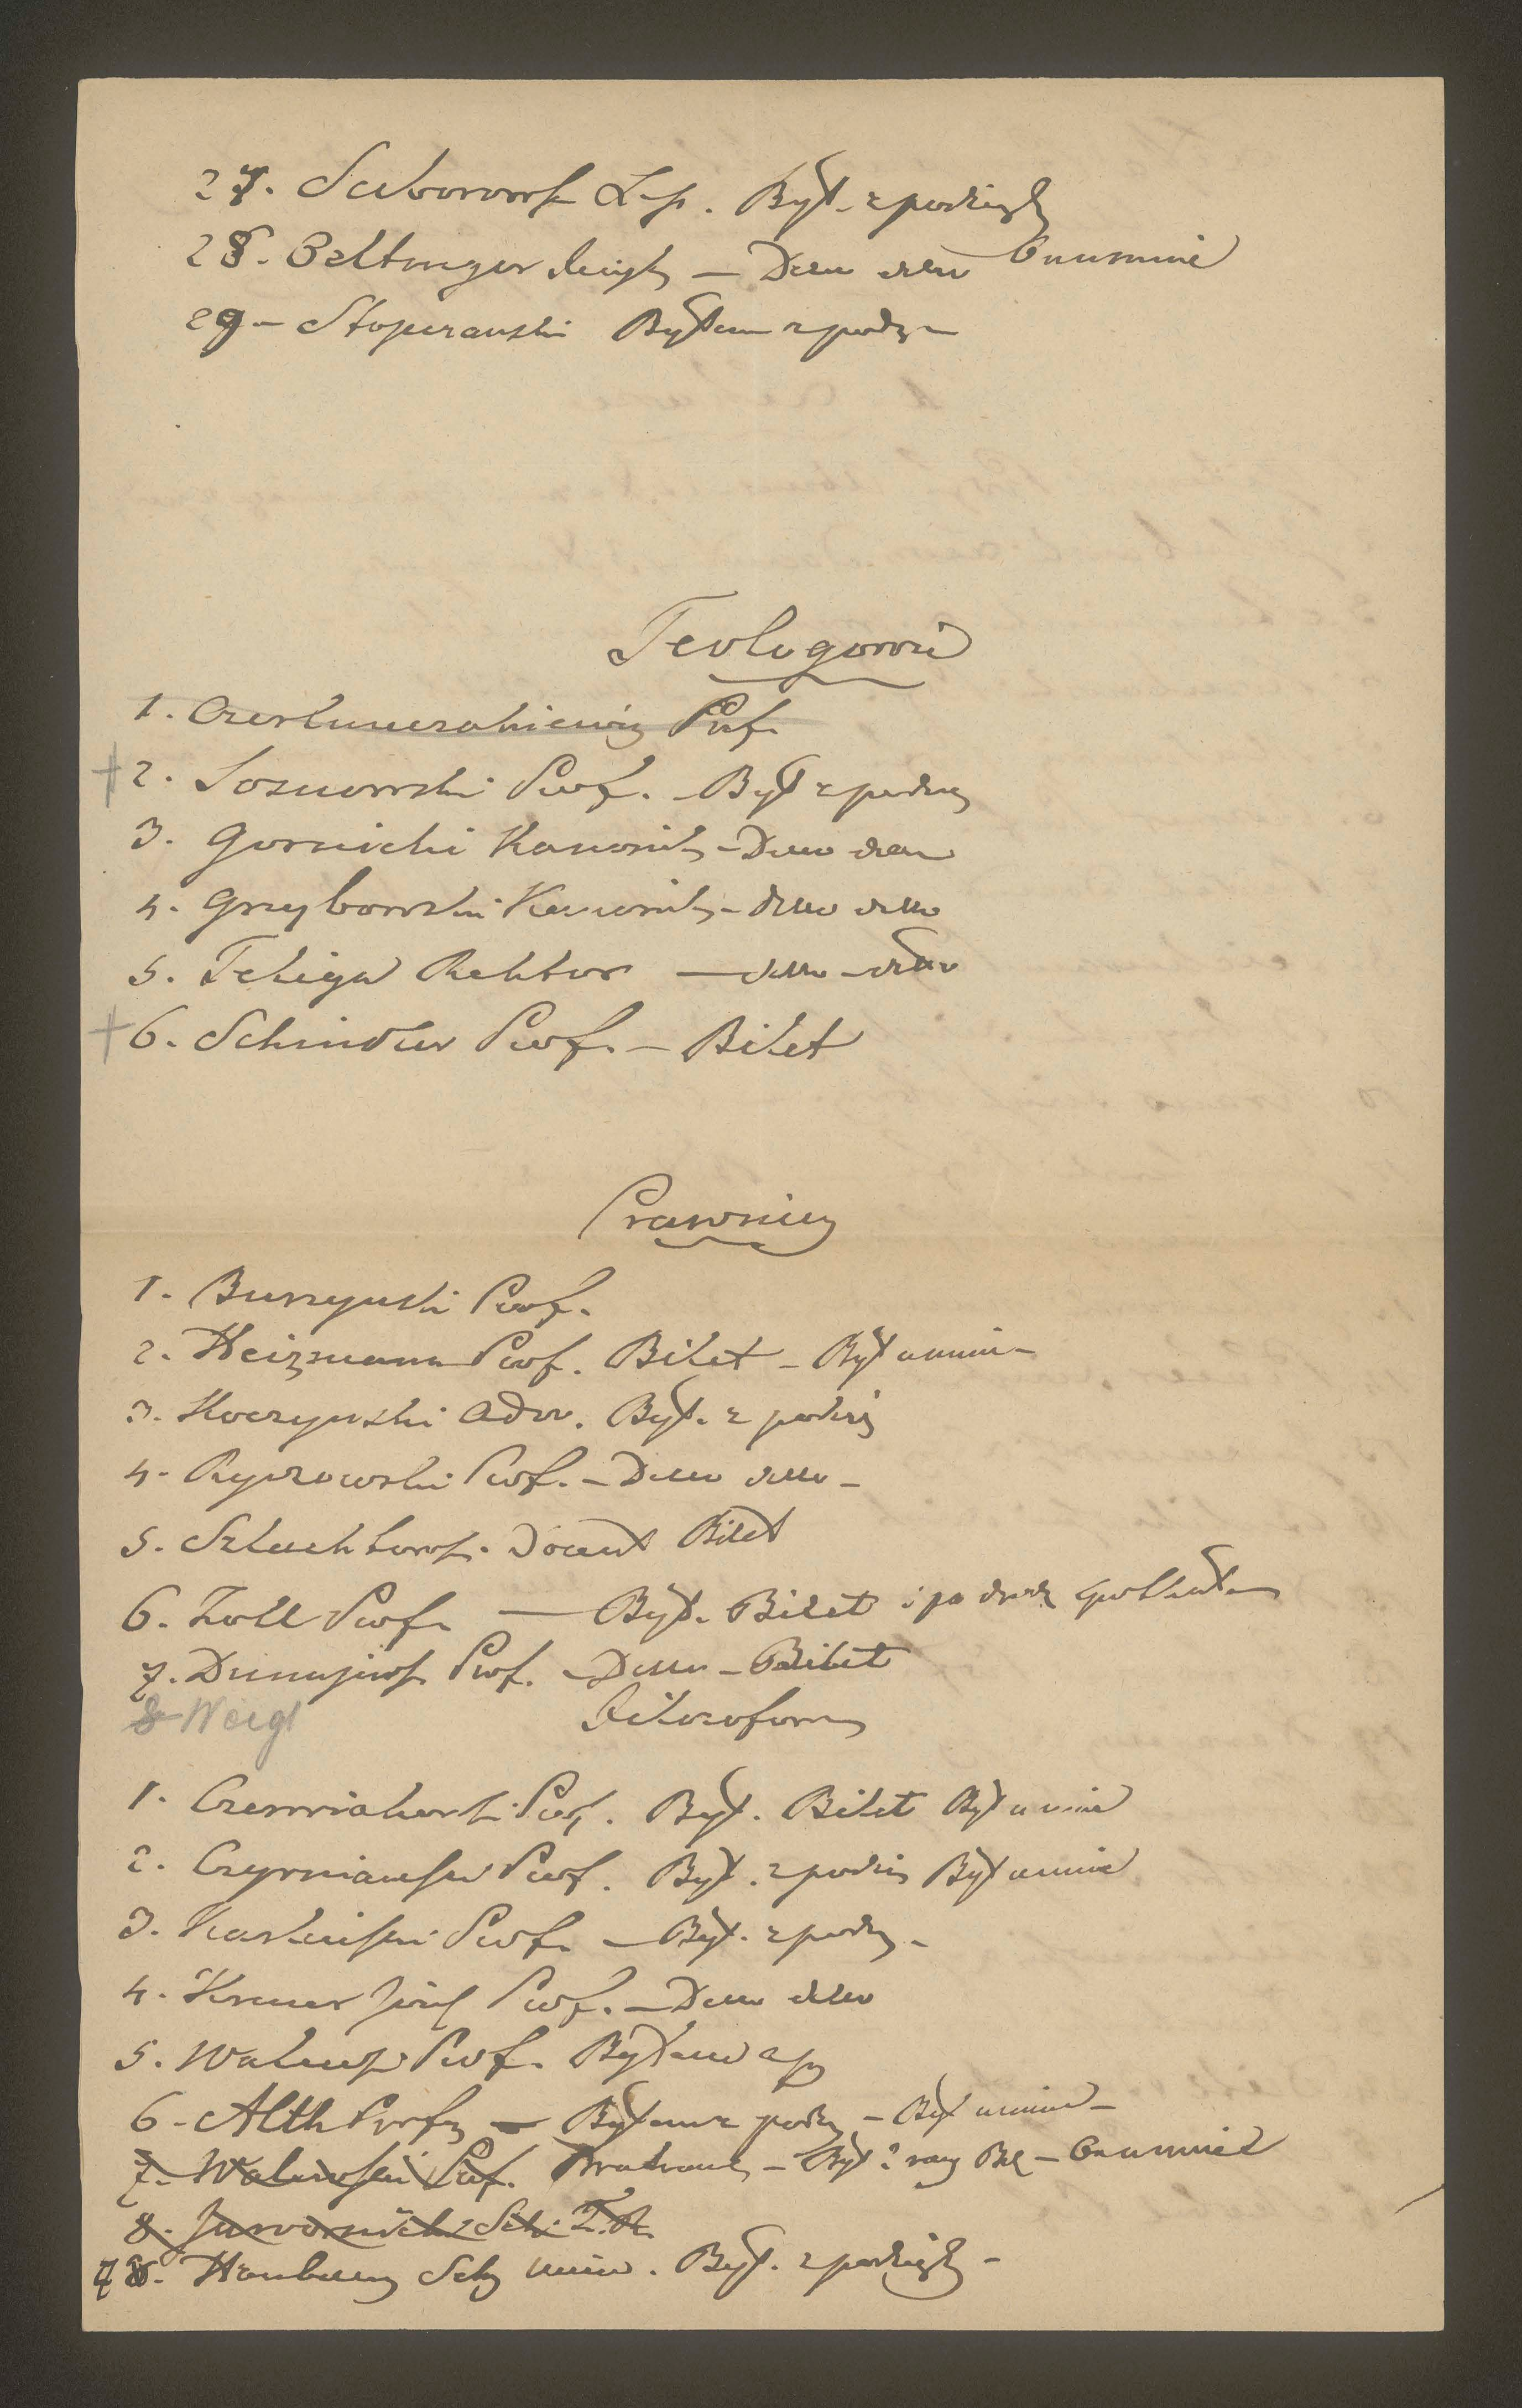 27. Saborowsk Lep. Był. z podzięk
28. Beltinger Księg – Ditto ditto
29 – Stoperanski Byłem z podz –
Teologowie
1. Czerlunczakiewicz Prof.
2. Sosnowski Prof. – Był z podzię
3. Gornicki Kanonik – Ditto ditto
4. Grzybowski Kanonik – ditto ditto
5. Teliga Rektor — ditto – ditto
6. Schindler Prof. – Bilet
Prawnicy
1. Burzynski Prof.
2. Heizmann Prof. Bilet – Był u mnie –
3. Koczynski Adw. Był. z podzię
4. Ryszowski Prof. – Ditto ditto –
5. Szlachtows. Docent Bilet
6. Zoll Prof. — Był. Bilet i po
7. Dunajews. Prof. – Ditto – Bilet
8 Weigl
Filozofowie
1. Czerwiakowsk. Prof. Był. Bilet Był u mnie
2. Czyrnianski Prof. Był. z podzię Był u mnie
3. Karlinski Prof. – Był. z podz –
4. Kremer Józef Prof. – Ditto ditto
5. Walews Prof. Byłem
6 – Alth Prof – Byłem z podz – Był u mnie –
7. Walewski Prof. – Był 2 razy
8. Jawornicki Sek. T. R.
7 8. Hanbury Sek Uniw. Był. z podzięk –